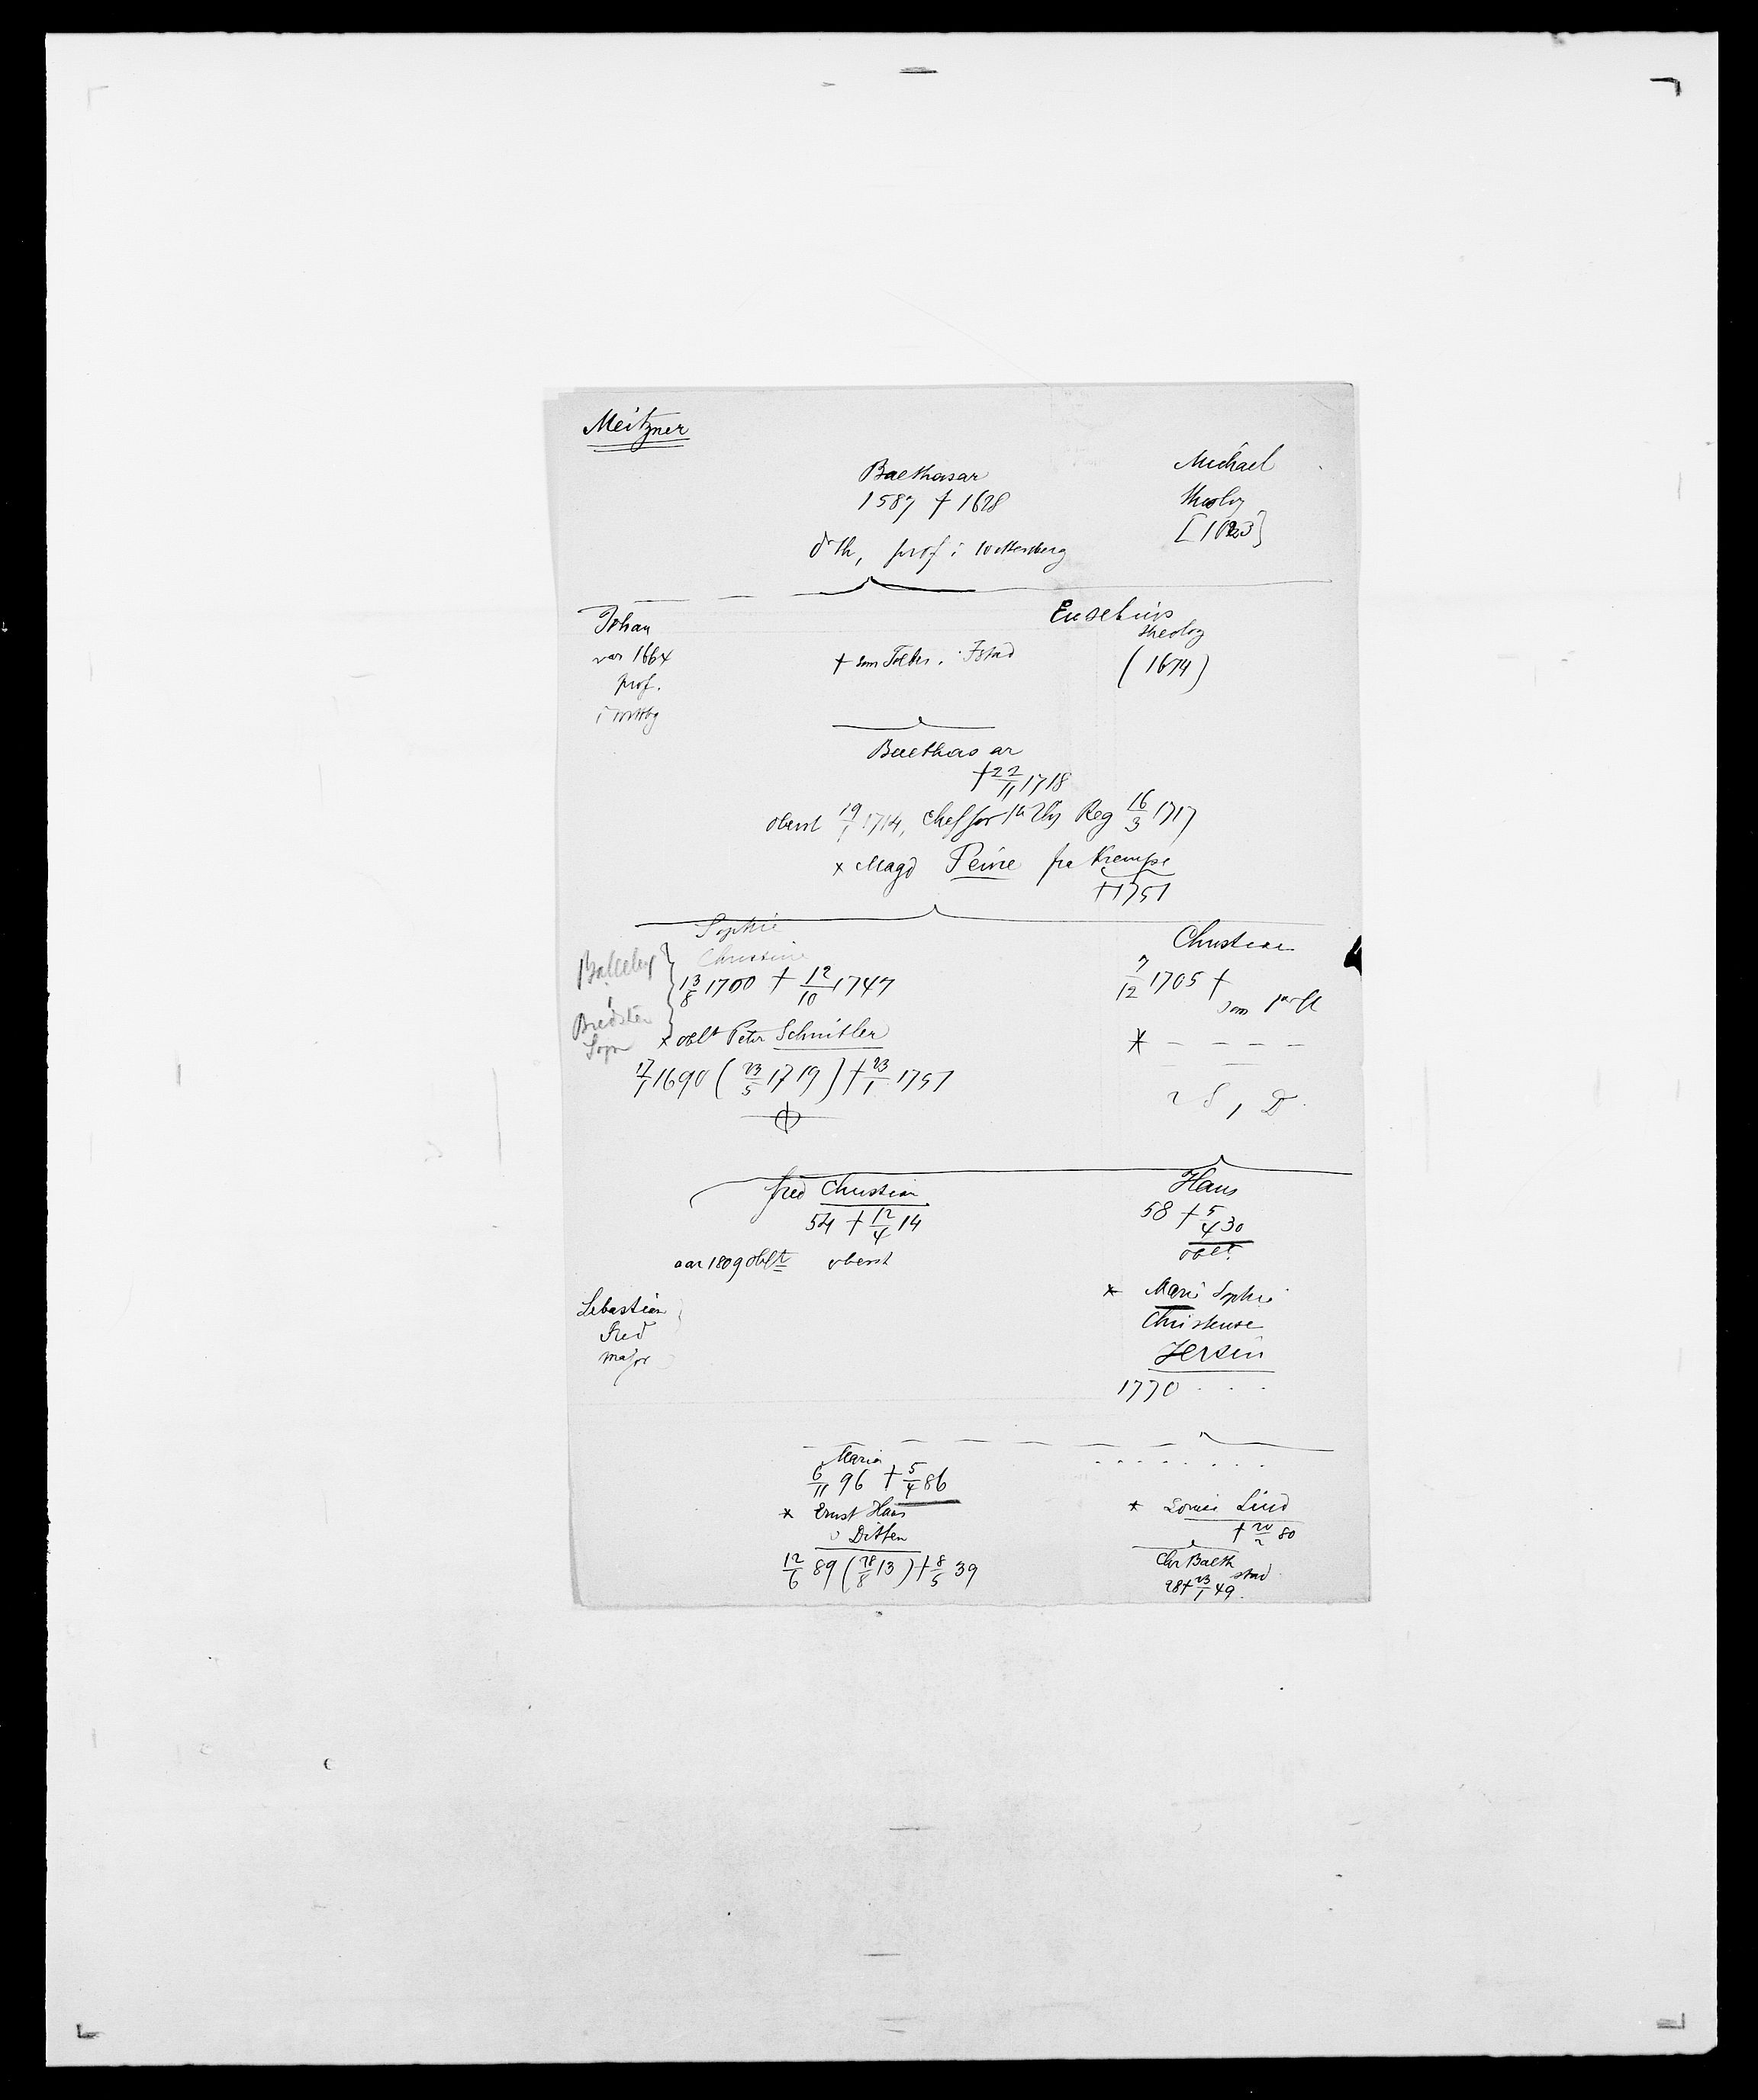 Meitzner
Balthasar
1587 † 1628
dr th, prof i Wittenberg
Michael
theolog
[1623]
Johan
var 1664
prof.
i Wittbg
† som Tolder i Istad
Eusebius
theolog
(1674)
Balthasar
† 22/11 1718
oberst 19/1 1714, chef for Reg 16/3 1717
x Magd Peine fra Krempe
† 1751
Sophie
Christine
13/8 1700 † 12/10 1747
x oblt Peter Schnitler
17/1 1690 (23/5 1719) † 23/1 1751
Christian
7/12 1705 †
som
* - - - -
2 S, D
Fred Christian
54 † 12/4 14
aar 1809 oblt oberst
Hans
58 † 5/4 30
oblt
* Marie Sophie
Christense
Jersin
1770 . . .
Sebastian
Fred
major
Maria
6/11 96 † 5/4 86
* Ernst Hans
v Ditten
12/6 89 (28/8 13) † 8/5 39
. . . . . . . .
* Lovise Lind
† 20/2 80
Chr Balth
stud
28 † 23/1 49.